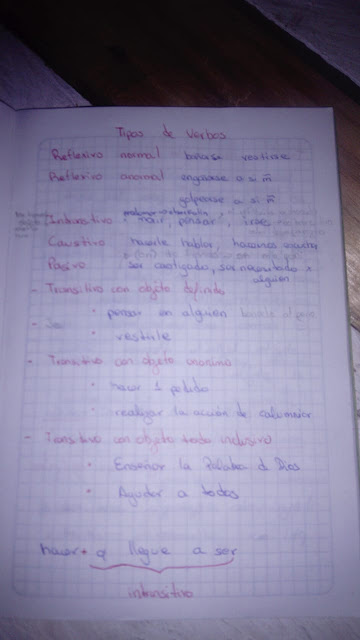 Tipos de Verbos
Reflexivo normal bañarse vestirse
Reflexivo anormal engañarse a si m̄
golpearse a si m̄
Intransitivo nacir, pensar, irse
Causitivo hacerle hablar, hacernos escuchar
Pasivo ser castigado, ser rescatado x
alguien
- Transitivo con objeto definido
• pensar en alguien
• vestirle
- Transitivo con objeto anonimo
• hacer 1 pedido
• realizar la acción de calumniar
- Transitivo con objeto todo inclusivo
• Enseñar la Palabra d Dios
• Ayudar a todos
hacer + q llegue a ser
intransitivo